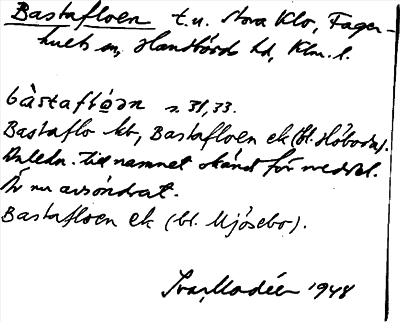 Bastafloen t.u. Stora Klo, Fager-
hults sn, Handbörds hd, Klm. l.
bàstaflo̱an s. 31, 33.
Bastaflo kt, Bastafloen ek (bl. Höboda).
Anledn. till namnet okänd för medd.
Är nu avsöndrat.
Bastafloen ek (bl. Mjösebo).
Ivar Modéer 1948